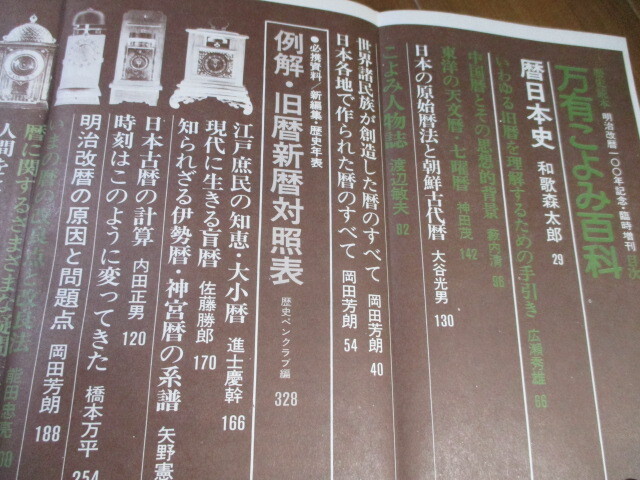 歴史読本・明治改暦一〇〇年記念・臨時増刊
万有こよみ百科
暦日本史 和歌森太郎 29
いわゆる旧暦を理解するための手引き 広瀬秀雄 66
中国暦とその思想的背景 藪内清 96
東洋の天文暦・七曜暦 神田茂 142
日本の原始暦法と朝鮮古代暦 大谷光男 130
こよみ人物誌 渡辺敏夫 82
世界諸民族が創造した暦のすべて 岡田芳朗 40
日本各地で作られた暦のすべて 岡田芳朗 54
●必携資料 新編集・歴史年表
例解・旧暦新暦対照表 歴史ペンクラブ編 328
江戸庶民の知恵・大小暦 進士慶幹 166
現代に生きる盲暦 佐藤勝郎 170
知られざる伊勢暦・神宮暦の系譜 矢野憲
日本古暦の計算 内田正男 120
時刻はこのように変ってきた 橋本万平 254
明治改暦の原因と問題点 岡田芳朗 188
いまの暦の改良点と改良法
暦に関するさまざまな疑問
人間を